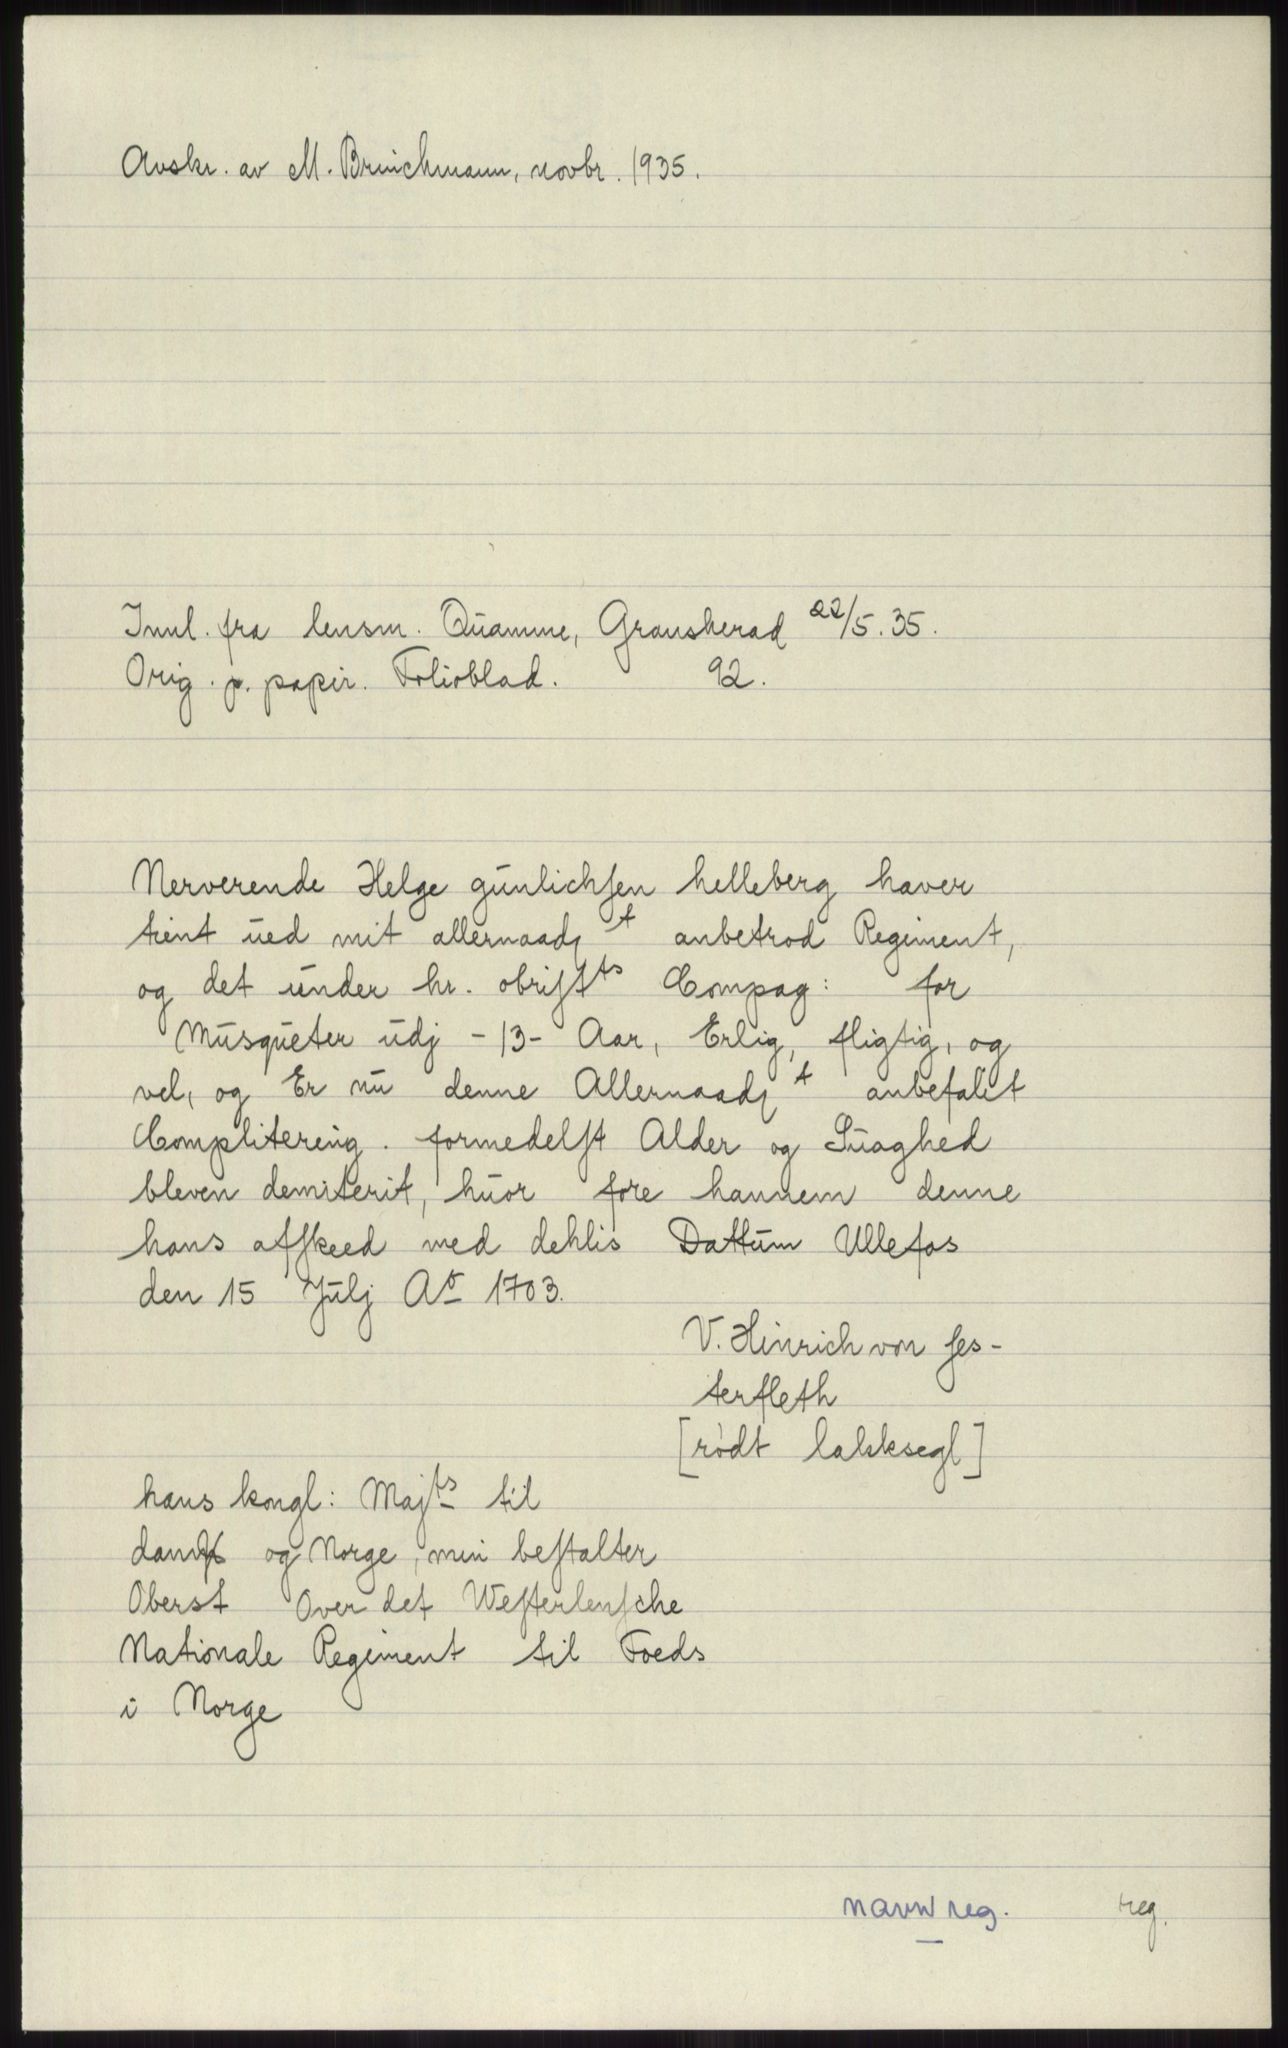 Avskr. av M. Brinchmann, novbr. 1935.
Innl. fra lensm. Quamme, Gransherad 22/5. 35.
Orig. p. papir. Folioblad. 92.
Nerverende Helge gunlichsen helleberg haver
tient ued mit allernaadst anbetrod Regiment,
og det under hr. obrists Compag: for
Musqueter udj - 13 - Aar, Erlig, fligtig, og
vel, og Er nu denne Allernaadst anbefalit
Complitering. formedelst Alder og Suaghed
bleven demiterit, huor fore hannem denne
hans afskeed med dehlis Dattum Ullefos
den 15 Julj Ao 1703.
V. Hinrich von fes-
terfleth
[rødt lakksegl]
hans kongl: Majts til
og Norge, min bestalter
Oberst Over det Westerlensche
Nationale Regiment til Foeds
i Norge
navnreg. reg.